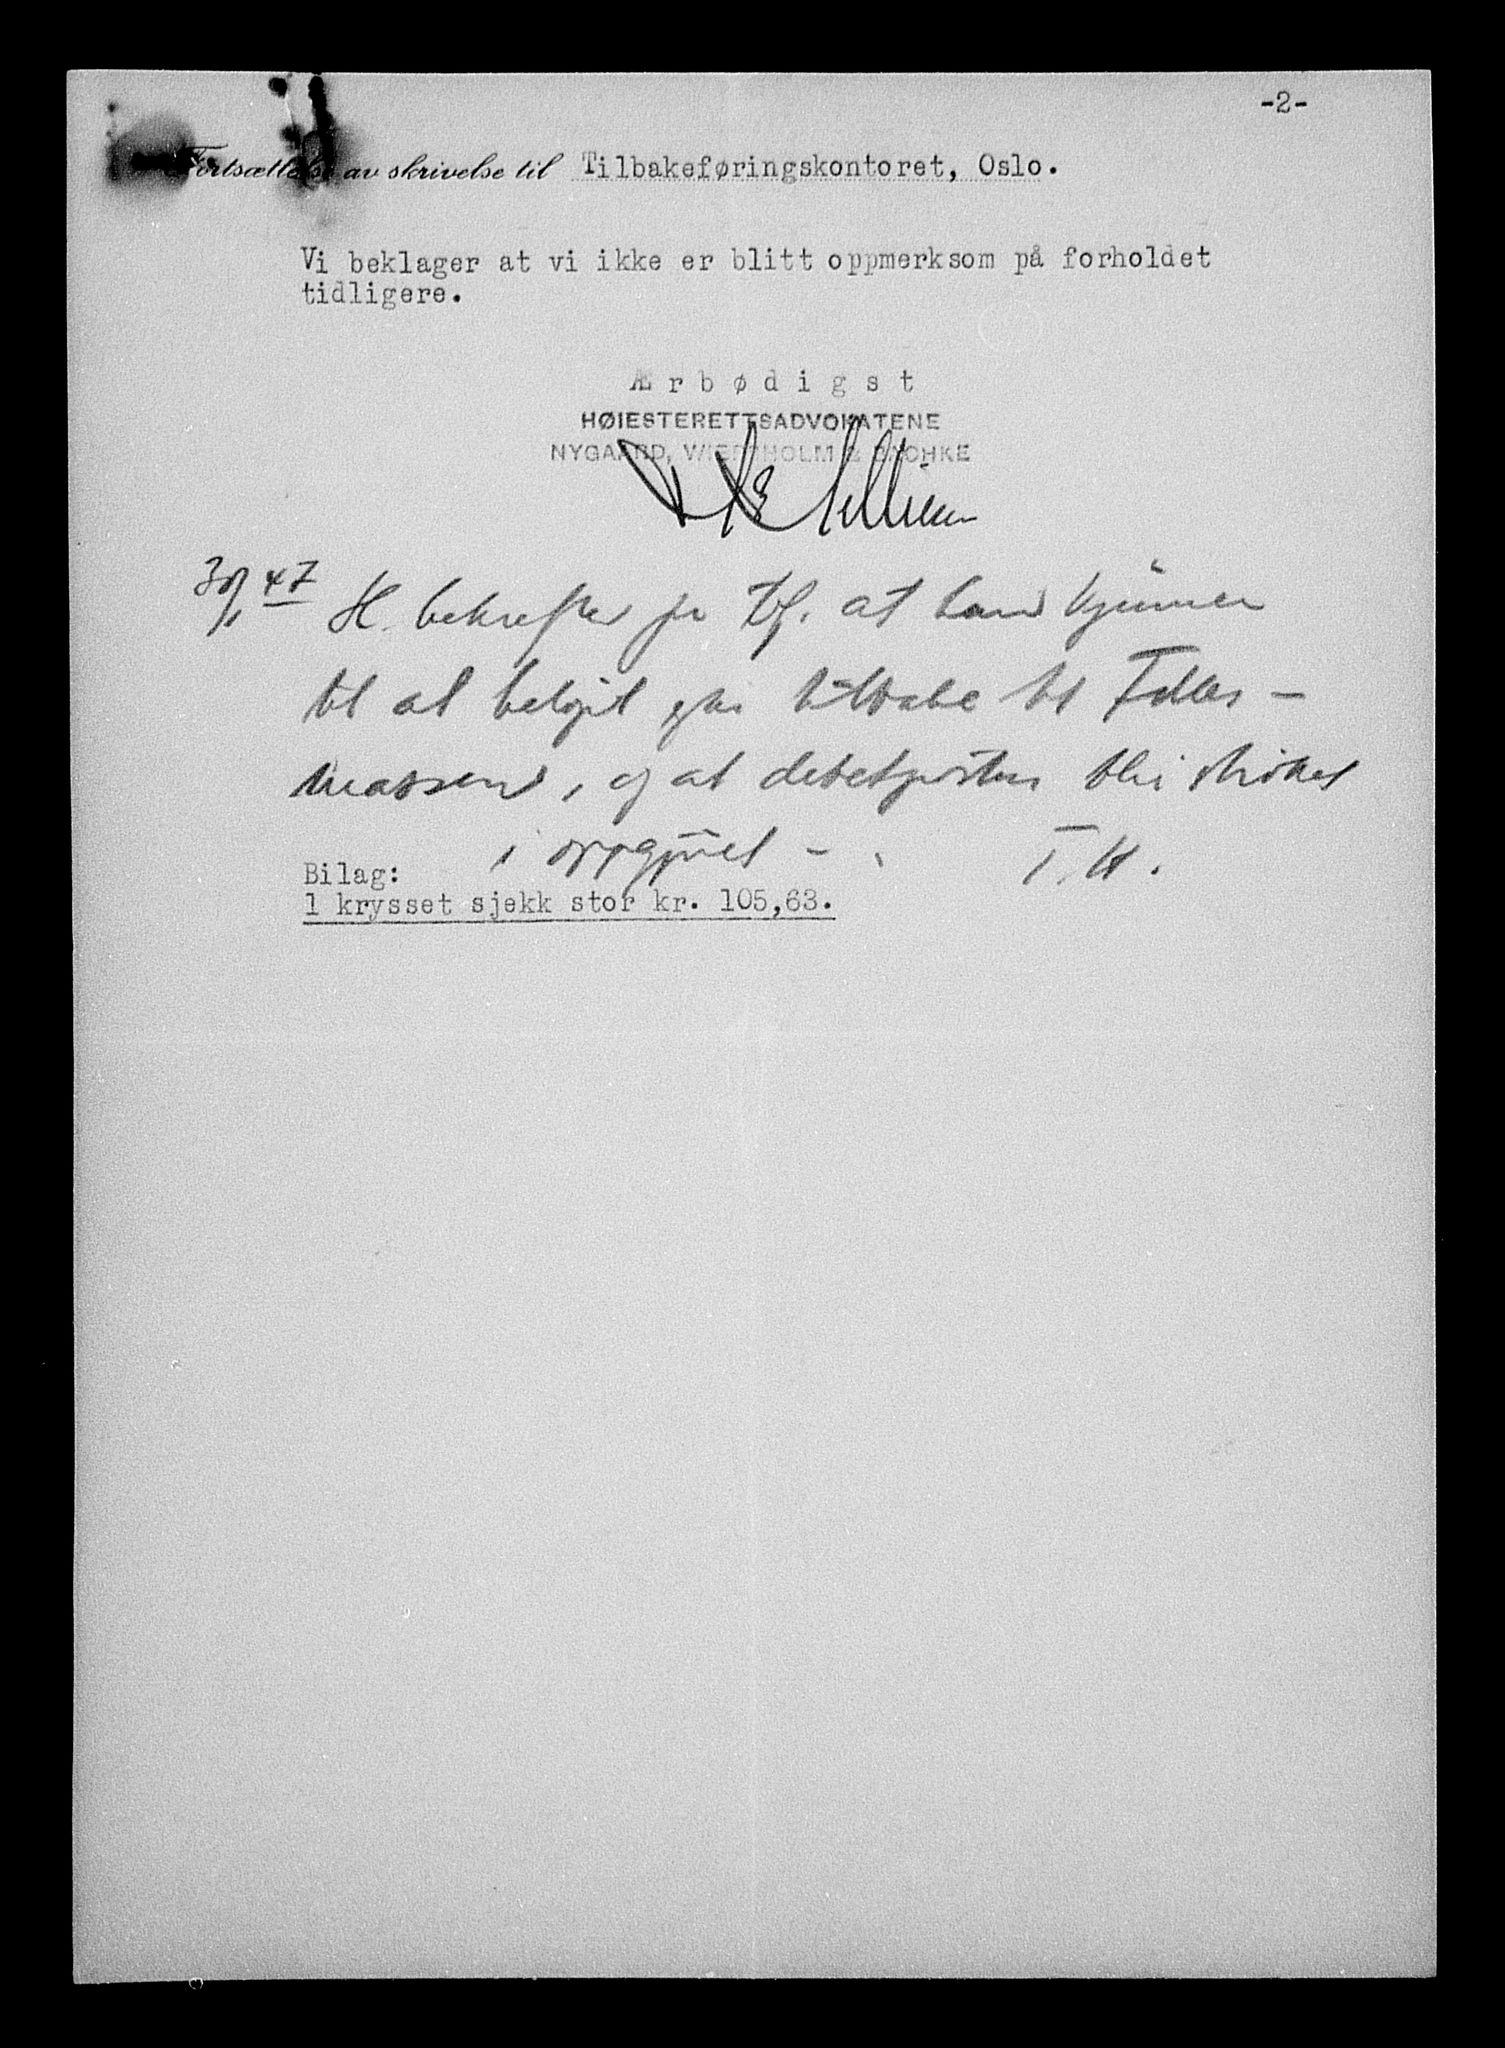 -2-
Fortsættelse av skrivelse til Tilbakeføringskontoret, Oslo.
Vi beklager at vi ikke er blitt oppmerksom på forholdet
tidligere.
Ærbødigst
HØIESTERETTSADVOKATENE
NYGAARD, WIERSHOLM & BACHKE
30/1 47 H. bekrefter pr tlf. at han kjenner
til at beløpet går tilbake til Felles-
massen, og at debetposten blir strøket
i oppgjøret -. T.H.
Bilag:
1 krysset sjekk stor kr. 105,63.